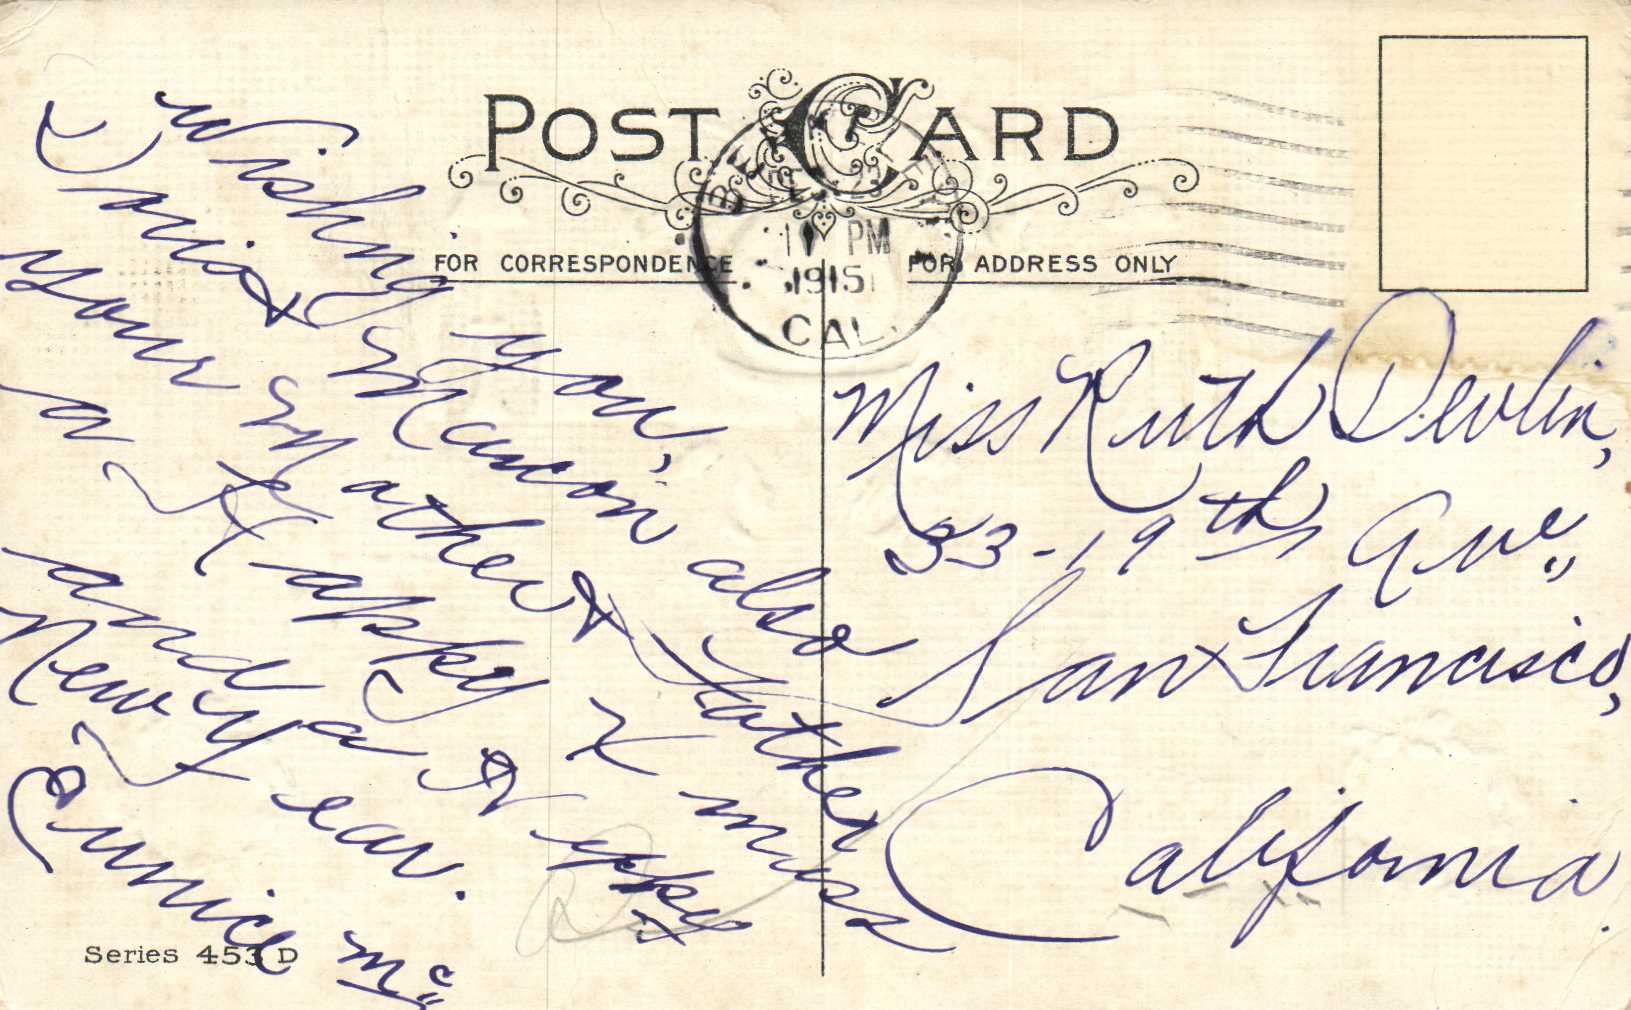 POST CARD
FOR CORRESPONDENCE
FOR ADDRESS ONLY
DEC 23
11 PM
1915
CAL.
Wishing you,
David & Marion also
your Mother & Father
a Happy X mass
and a Happy
New Year.
Eunice Mc
Miss Ruth Devlin,
33-19th Ave.,
San Francisco,
California.
Series 453 D